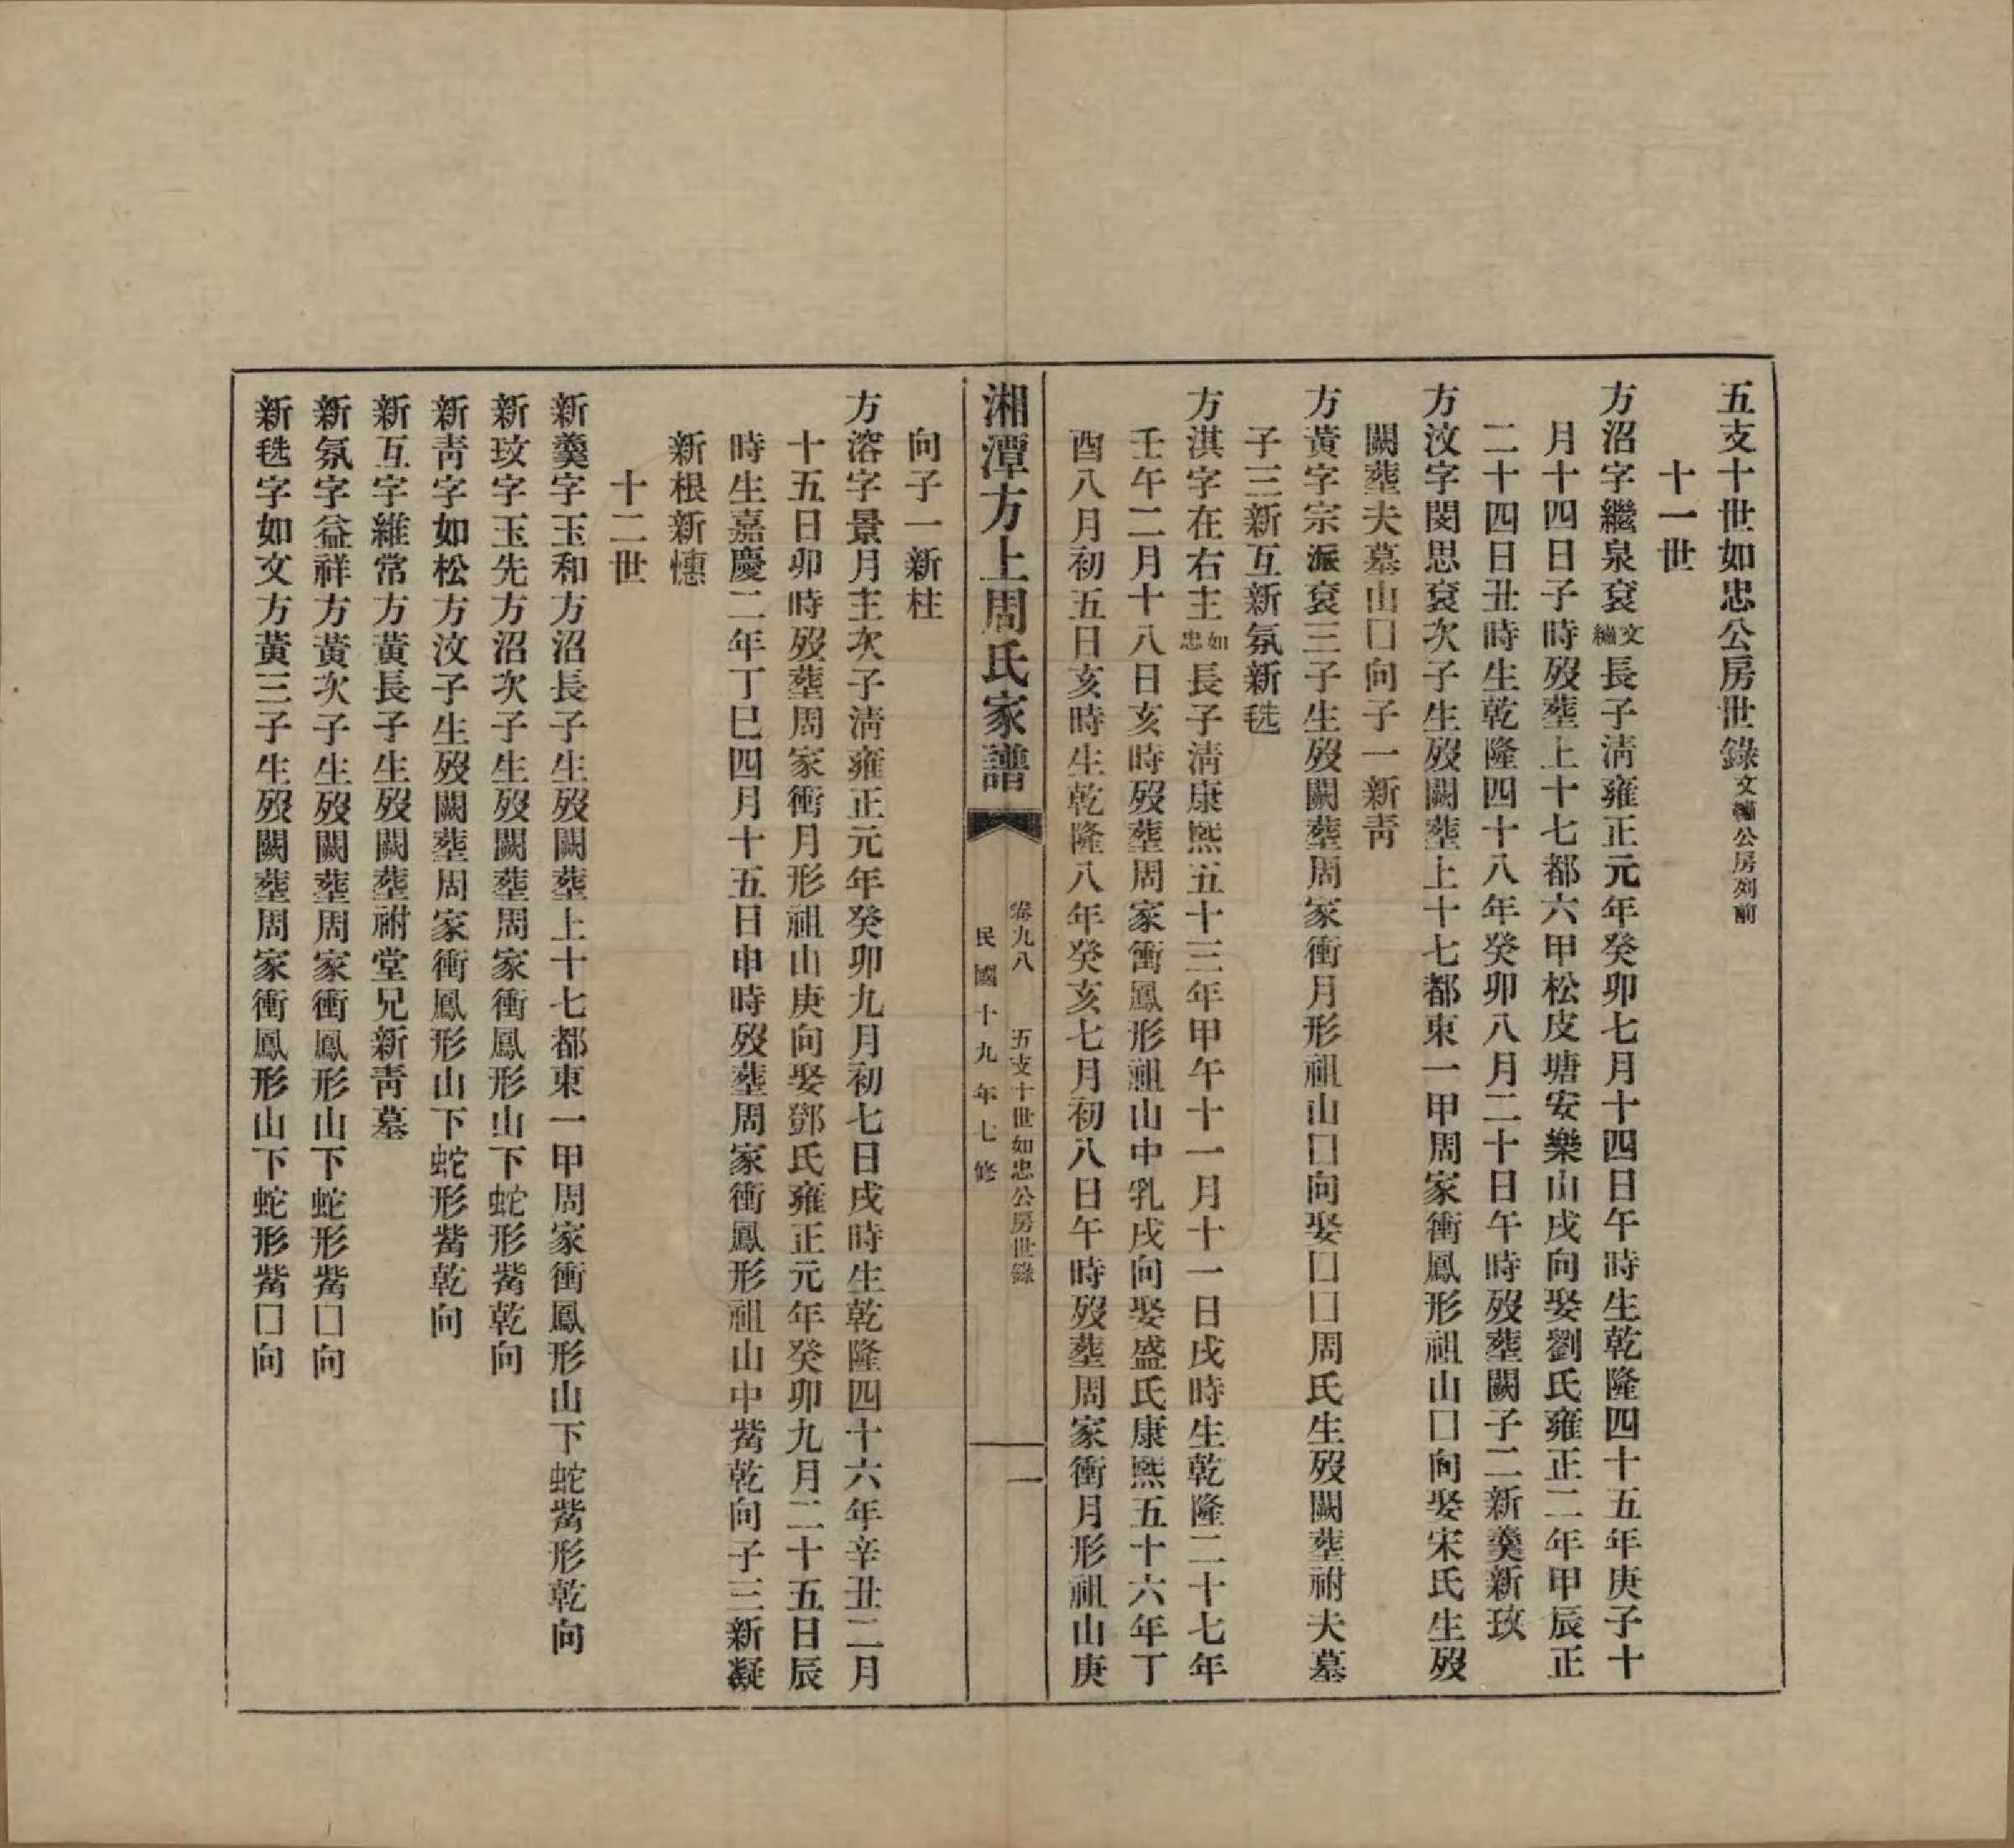 五支十世如忠公房世錄文繡公房列前
十一世
方沼字繼泉袞文繡長子淸雍正元年癸卯七月十四日午時生乾隆四十五年庚子十
月十四日子時歿葬上十七都六甲松皮塘安樂山戌向娶劉氏雍正二年甲辰正
二十四日丑時生乾隆四十八年癸卯八月二十日午時歿葬闕子二新羹新玫
方汶字閔思袞次子生歿闕葬上十七都東一甲周家衝鳳形祖山囗向娶宋氏生歿
闕葬夫墓山囗向子一新靑
方黃字宗派袞三子生歿闕葬周家衝月形祖山囗向娶囗囗周氏生歿闕葬祔夫墓
子三新互新氛新毪
方淇字在右主如忠長子淸康熙五十三年甲午十一月十一日戌時生乾隆二十七年
壬午二月十八日亥時歿葬周家衝鳳形祖山中乳戌向娶盛氏康熙五十六年丁
酉八月初五日亥時生乾隆八年癸亥七月初八日午時歿葬周家衝月形祖山庚
湘潭方上周氏家譜
卷九八　五支十世如忠公房世錄
民國十九年七修
一
向子一新柱
方溶字景月主次子淸雍正元年癸卯九月初七日戌時生乾隆四十六年辛丑二月
十五日卯時歿葬周家衝月形祖山庚向娶鄧氏雍正元年癸卯九月二十五日辰
時生嘉慶二年丁巳四月十五日申時歿葬周家衝鳳形祖山中觜乾向子三新凝
新根新憓
十二世
新羹字玉和方沼長子生歿闕葬上十七都東一甲周家衝鳳形山下蛇觜形乾向
新玫字玉先方沼次子生歿闕葬周家衝鳳形山下蛇形觜乾向
新靑字如松方汶子生歿闕葬周家衝鳳形山下蛇形觜乾向
新互字維常方黃長子生歿闕葬祔堂兄新靑墓
新氛字益祥方黃次子生歿闕葬周家衝鳳形山下蛇形觜囗向
新毪字如文方黃三子生歿闕葬周家衝鳳形山下蛇形觜囗向